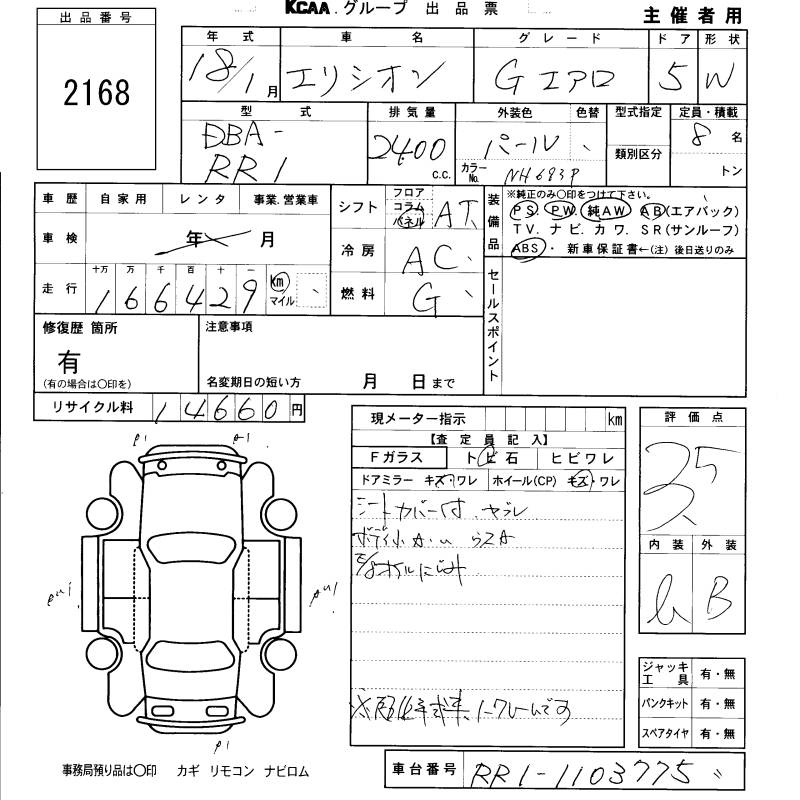 KCAA グループ 出品票
主催者用
出品番号
2168
年式 車名 グレード ドア 形状
18/1月 エリシオン Gエアロ 5 W
型式 排気量 外装色 色替 型式指定 定員・積載
DBA-
RR1
2400 c.c.
パール
カラーNo. NH683P
類別区分
8名
トン
車歴 自家用 レンタ 事業.営業車
車検 年 月
走行 十万 万 千 百 十 一
166429 km マイル
シフト フロア コラム パネル AT
冷房 AC
燃料 G
装備品
※純正のみ〇印をつけて下さい。
PS. PW. 純AW AB(エアバック)
TV. ナビ. カワ. SR(サンルーフ)
ABS・新車保証書←(注)後日送りのみ
セールスポイント
修復歴 箇所
有
(有の場合は〇印を)
注意事項
名変期日の短い方 月 日まで
リサイクル料 14660円
現メーター指示 km
【査定員記入】
Fガラス トビ石 ヒビワレ
ドアミラー キズ・ワレ ホイール(CP) キズ・ワレ
シートカバー付 ヤブレ
ボディ小
オイルにじみ
評価点
3.5
内装 外装
B
ジャッキ 工具 有・無
パンクキット 有・無
スペアタイヤ 有・無
事務局預り品は〇印 カギ リモコン ナビロム
車台番号 RR1-1103775